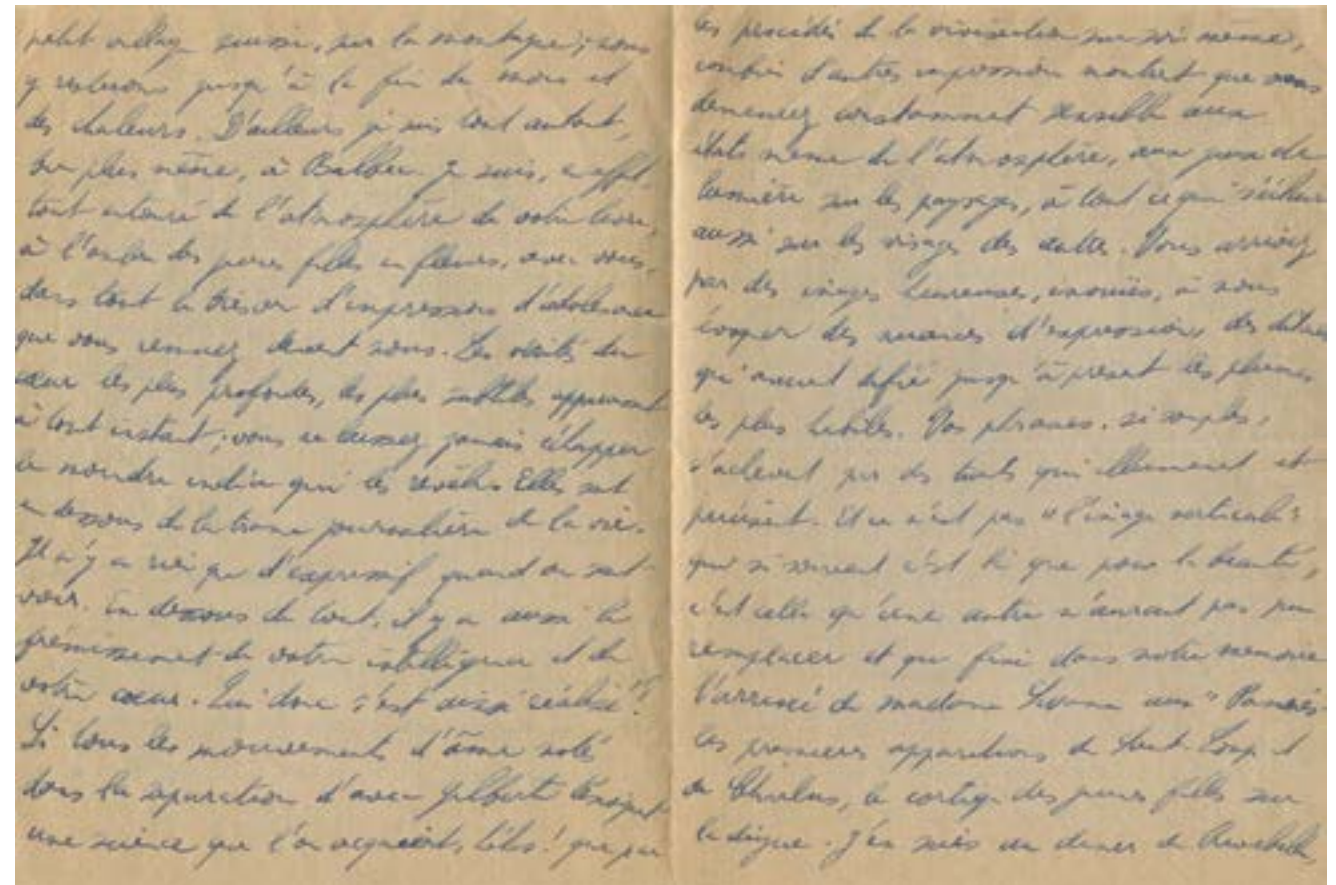 petit village suisse, sur la montagne ; nous
y resterons jusqu'à la fin du mois et
des chaleurs. D'ailleurs je suis tout autant,
ou plus même, à Balbec. Je suis, en effet,
tout entouré de l'atmosphère de votre livre,
à l'ombre des jeunes filles en fleurs, avec vous,
dans tout le trésor d'impressions d'adolescence
que vous ramenez devant nous. Les vérités du
cœur les plus profondes, les plus subtiles apparaissent
à tout instant ; vous ne laissez jamais échapper
le moindre indice qui les révèle. Elles sont
en dessous de la trame journalière de la vie.
Il n'y a rien que d'expressif quand on sait
voir. En dessous de tout, il y a aussi le
frémissement de votre intelligence et de
votre cœur. Qui donc s'est ainsi réalisé !
Si tous les mouvements d'âme notés
dans la séparation d'avec Gilberte témoignent
une science que l'on acquiert, hélas ! que par
les procédés de la vivisection sur soi même,
combien d'autres impressions montrent que vous
demeurez constamment sensible aux
états même de l'atmosphère, aux jeux de
lumière sur les paysages, à tout ce qui
aussi sur les visages des autres. Vous arrivez
par des images heureuses, inouïes, à nous
des nuances d'expressions, des
qu'avaient défié jusqu'à présent les plumes
les plus habiles. Vos phrases, si souples,
s'achèvent par des traits qui illuminent et
précisent. Et ce n'est pas "l'image verticale"
qui si souvent n'est là que pour la beauté,
c'est celle qu'une autre n'aurait pas pu
remplacer et qui fixe dans notre mémoire
l'arrivée de madame Swann aux
les premières apparitions de Saint-Loup et
de Charlus, le cortège des jeunes filles sur
la digue. J'en suis au dîner de Rivebelle